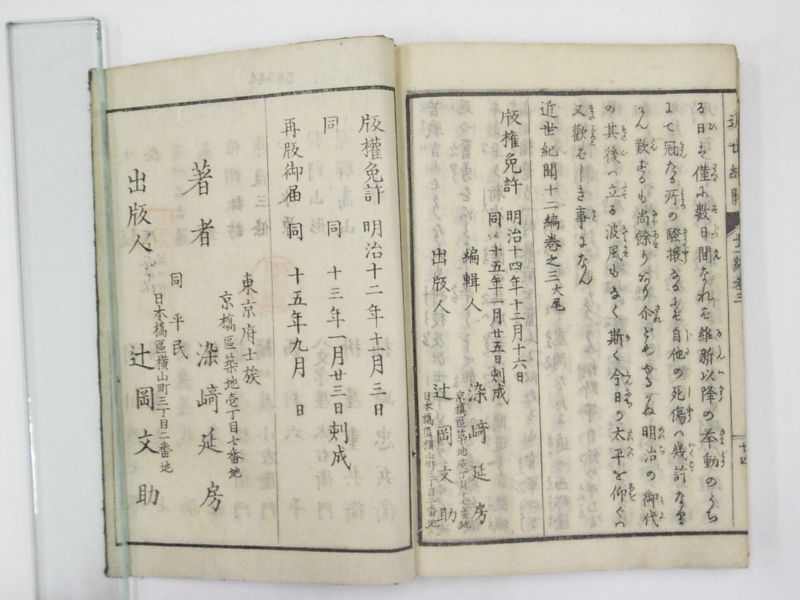 近世紀聞 十二編巻三
る日は僅に数日間なれど維新以降の挙動のうち
にて冠たる所の騒擾なるに自他の死傷は幾許
歎するも尚余り
の其後は立る波風もなく斯く今日の太平を仰ぐ
又歓ばしき事になん
近世紀聞十二編巻之三大尾
版權免許 明治十四年十二月十六日
同 十五年一月廿五日刻成
編輯人 京橋區築地壱丁目七番地 染﨑延房
出版人 日本橋區横山町三丁目二番地 辻岡文助
十四
版權免許 明治十二年十二月三日
同 同 十三年一月廿三日刻成
再版御届 同 十五年九月 日
著者 東京府士族 京橋區築地壱丁目七番地 染﨑延房
出版人 同平民 日本橋區横山町三丁目二番地 辻岡文助